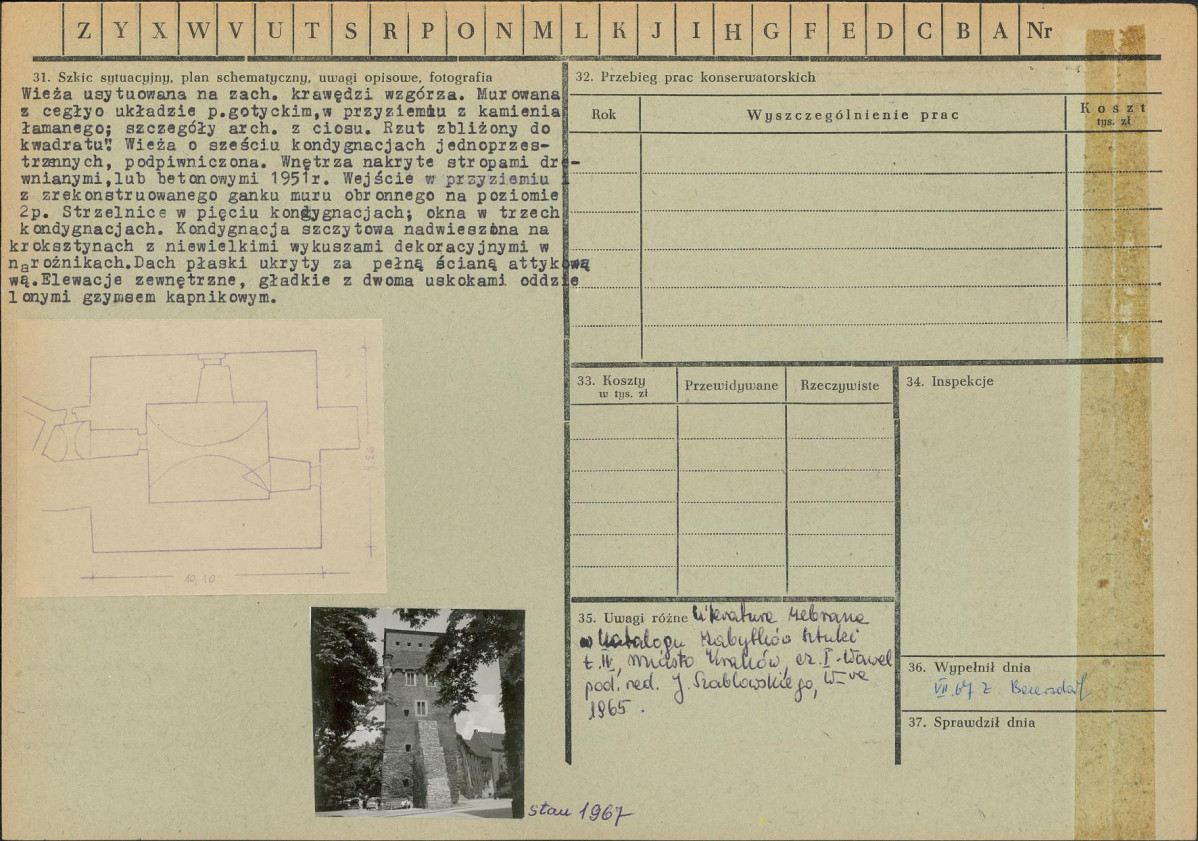 Z Y X W V U T S R P O N M L K J I H G F E D C B A Nr
31. Szkic sytuacyjny, plan schematyczny, uwagi opisowe, fotografia
Wieża usytuowana na zach. krawędzi wzgórza. Murowana
z cegłyo układzie p.gotyckim,w przyziemiu z kamienia
łamanego; szczegóły arch. z ciosu. Rzut zbliżony do
kwadratu". Wieża o sześciu kondygnacjach jednoprzes-
trzennych, podpiwniczona. Wnętrza nakryte stropami dre-
wnianymi,lub betonowymi 1951r. Wejście w przyziemiu i
z zrekonstruowanego ganku muru obronnego na poziomie
2p. Strzelnice w pięciu kondygnacjach; okna w trzech
kondygnacjach. Kondygnacja szczytowa nadwieszona na
kroksztynach z niewielkimi wykuszami dekoracyjnymi w
narożnikach.Dach płaski ukryty za pełną ścianą attykową
wą.Elewacje zewnętrzne, gładkie z dwoma uskokami oddzie
lonymi gzymsem kapnikowym.
10,10
stan 1967
32. Przebieg prac konserwatorskich
Rok Wyszczególnienie prac Koszt
tys. zł
33. Koszty
w tys. zł
Przewidywane Rzeczywiste
34. Inspekcje
35. Uwagi różne Literatura zebrana
w Katalogu Zabytków Sztuki
t. IV, miasto Kraków, cz. I-Wawel
pod. red. J. Szablowskiego, W-wa
1965.
36. Wypełnił dnia
VII.67 Z. Beiersdorf
37. Sprawdził dnia